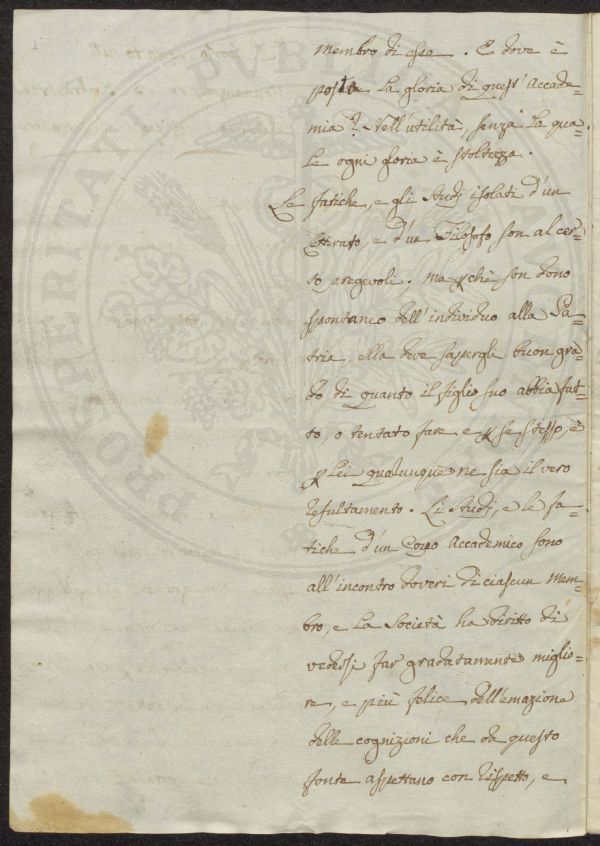 membro di essa. E dove è
posta la gloria di quest'Accade=
mia? Nell'utilità, senza la qua=
le ogni gloria è stoltezza.
Le fatiche, e gli Studj isolati d'un
Letterato, e d'un Filosofo son al cer=
to pregevoli. Ma pchè son dono
spontaneo dell'individuo alla Pa=
tria, ella deve sapergli buon gra=
do di quanto il figlio suo abbia fat=
to, o tentato fare e p se stesso, e
p Lei qualunque ne sia il vero
resultamento. Li Studj, e le fa=
tiche d'un Corpo Accademico sono
all'incontro doveri di ciascun Mem=
bro, e la Società ha diritto di
vedersi far gradatamente miglio=
re, e più felice dell'emazione
delle cognizioni che da questo
fonte aspettano con rispetto, e
PROSPERITATI PUBLICAE